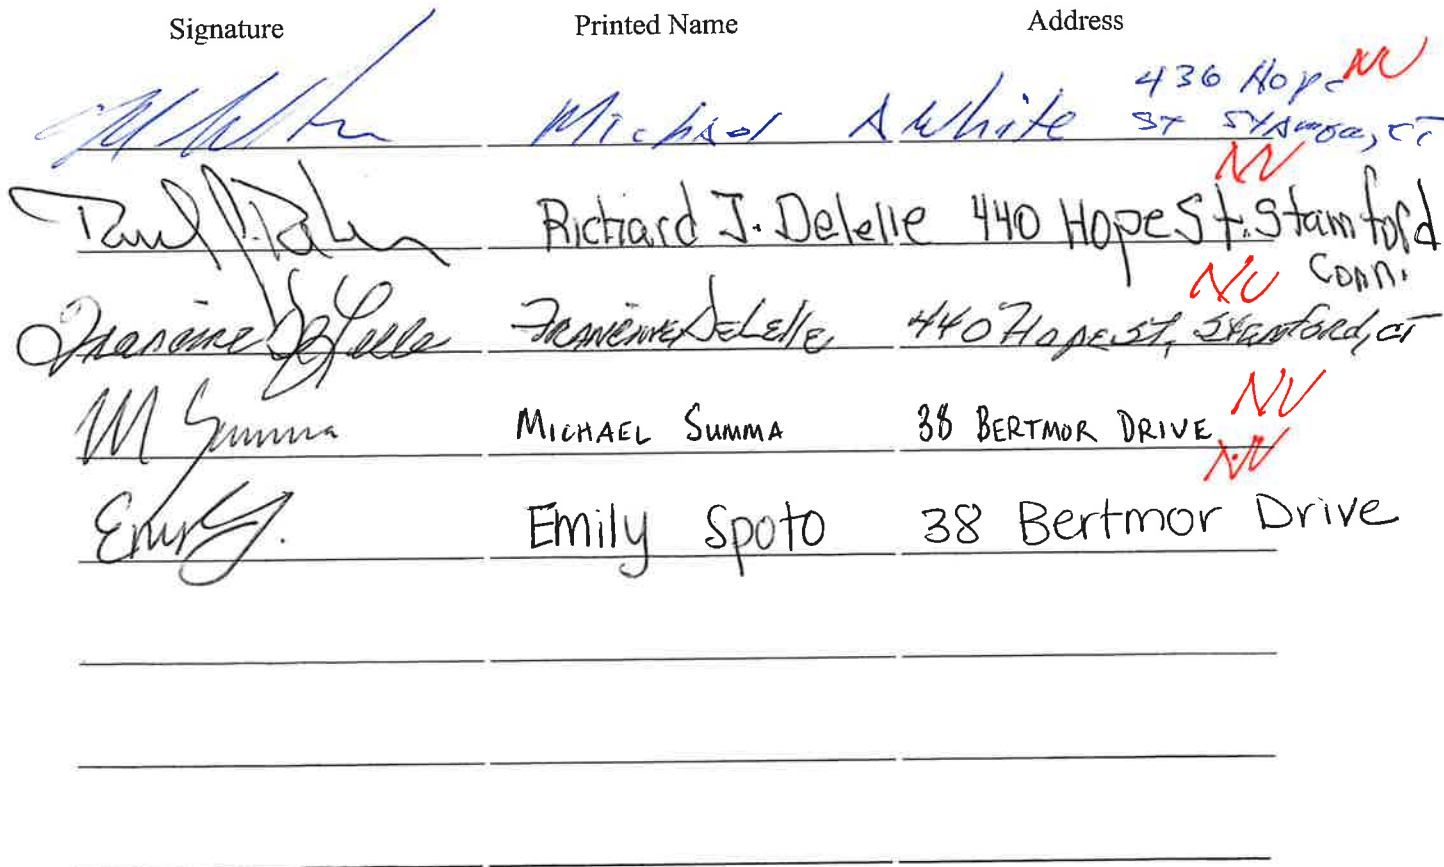 Signature Printed Name Address
Michael A White 436 Hope NV
St Stamford, CT
NV
Richard J. Delelle 440 Hope St. Stamford
Conn.
NV
Francine DeLelle Francine DeLelle 440 Hope St, Stamford, CT
NV
M Summa MICHAEL SUMMA 38 BERTMOR DRIVE
NV
Emily Spoto 38 Bertmor Drive